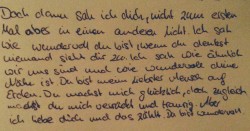 Doch dann sah ich dich, nicht zum ersten
Mal aber in einem anderen Licht. Ich sah
wie wundervoll du bist, wenn du denkst
niemand sieht dir zu. Ich sah wie ähnlich
wir uns sind und wie wundervoll deine
ist. Du bist mein liebster Mensch auf
Erden. Du machst mich glücklich, doch zugleich
machst du mich verrückt und traurig. Aber
ich liebe dich und das zählt. Du bist wundervoll